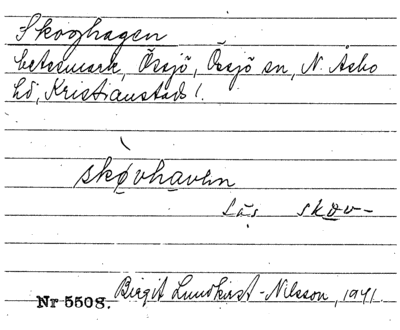 Skoghagen
betesmark, Össjö, Össjö sn, N. Åsbo
hd, Kristianstads l.
skøvhavən
Läs skov-
Nr 5508. Birgit Lundkvist-Nilsson, 1941.